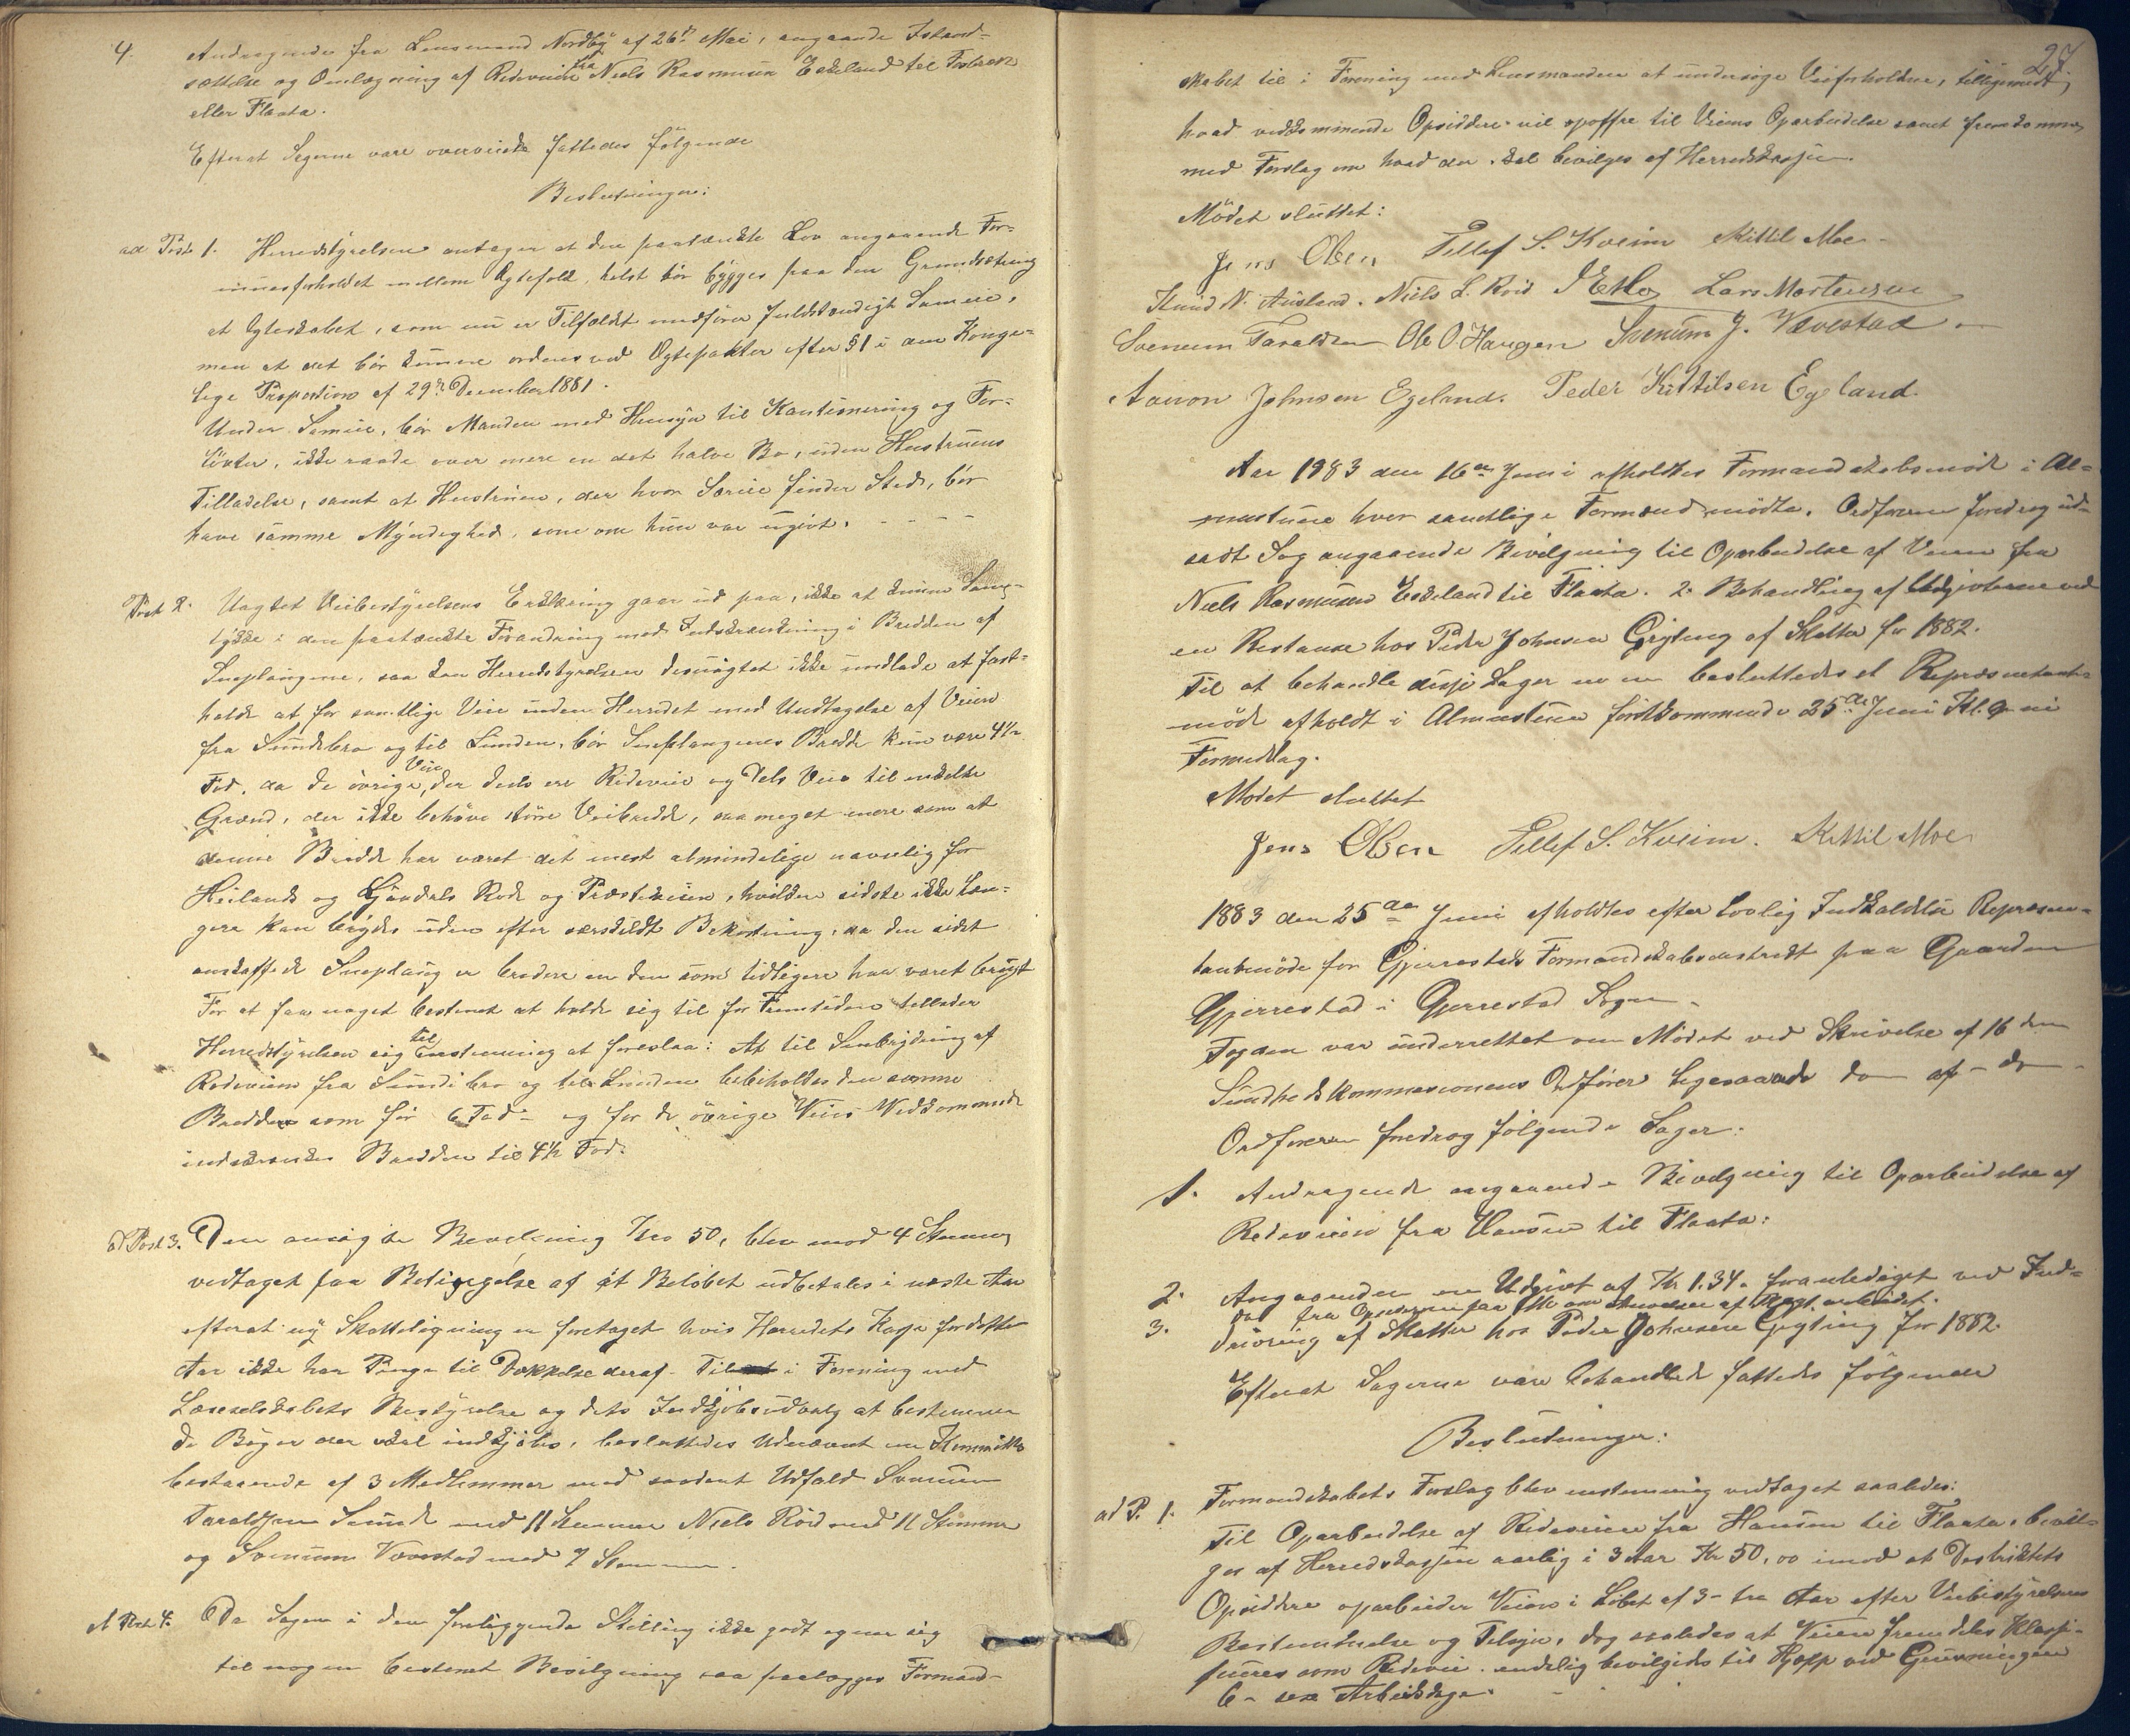 4. Andragende fra Lensmand Nordby af 26de Mai, angaaende Istand-
sættelse og Omlægning af Rideveien fra Niels Rasmussen Eskeland til
eller Flaata.
Efterat Sagerne vare overveiede fattedes følgende
Beslutninger:
ad Post 1. Herredstyrelsen antager at den paatænkte Lov angaaende For-
muesforholdet mellem Ægtefolk, helst bör bygges paa den Grundsætning
at Ægteskabet, som nu er Tilfældet medförer fuldstændigt Sameie,
men at det bör kunne ordnes ved Ægtepakter efter §1 i den Konge-
lige Proposition af 29de December 1881.
Under Sameie, bör Manden med Hensyn til Kautionering og For-
löfter, ikke raade over mere en det halve Bo, uden Hustruens
Tilladelse, samt at Hustruen, der hvor Særeie finder Sted, bör
have samme Myndighed, som om hun var ugivt.
Post 2. Uagtet Veibestyrelsens Erklæring gaar ud paa, ikke at kunne Sam-
tykke i den paatænkte Forandring med Indskrænkning i Bredden af
Sneplougene, saa kan Herredstyrelsen desuagtet ikke undlade at fast-
holde at for samtlige Veie inden Herredet med Undtagelse af Veien
fra Sundebro og til Lunden, bör Sneplougenes Bredde kun være 4½
Fod, da de övrige Veie, der dels ere Rideveie og Dels Veie til enkelte
Grænd, der ikke behöve större Veibredde, saa meget mere som at
denne Bredde har været det mest almindelige navnlig for
Heilands og Gjøndals Rode og Præsteveien, hvilken sidste ikke læn-
gere kan bröydes uden efter særskildt Bekostning, da den sidst
anskaffede Sneploug er bredere en den som tidligere har været brugt
For at faa noget bestemt at holde sig til for Fremtiden tillader
Herredstyrelsen sig enstemmig at foreslaa: At til Snebröydning af
Rodeveien fra Sundebro og til Lunden bibeholdes den samme
Bredde som för 6 Fod – og for de övrige Veies Vedkommende
indskrænkes Bredden til 4½ Fod.
ad Post 3. Den ansögte Bevilgning Kro 50, blev mod 4 Stemmer
vedtaget paa Betingelse af at Belöbet udbetales i næste Aar
efterat ny Skatteligning er foretaget hvis Herredets Kasse for dette
Aar ikke har Penge til Dækkelse deraf. Til i Forening med
Læseselskabets Bestyrelse og dets Indkjöbsudvalg at bestemme
de Böger der skal indkjöbes, besluttedes Udnævnt en Kommitte
bestaaende af 3 Medlemmer med saadant Udfald Svenum
Taraldsen Sunde med 11 Stemmer Niels Röd med 11 Stemmer
og Svenum Vævestad med 7 Stemmer.
ad Post 4. Da Sagen i den foreliggende Stilling ikke godt egner sig
til nogen bestemt Bevilgning saa paalægges Formand-
27.
skabet til i Forening med Lensmanden at undersøge Veiforholdene, tilligemed,
hvad vedkommende Opsiddere vil opoffre til Veiens Oparbeidelse samt fremkomme
med Forslag om hvad der skal bevilges af Herredskassen.
Mödet sluttet:
Jens Olsen Tellef S. Kveim Kittil Moe
Knud N. Ausland. Niels L. Röd Lars Mortensen
Svenum Taraldsen Ole O. Haugen Svenum J. Vævestad
Aanon Johnsen Egeland. Peder Kittilsen Egeland.
Aar 1883 den 16de Juni afholdtes Formandskabsmöde i Al-
muestuen hvor samtlige Formænd mödte. Ordföreren foredrog ud-
sadt Sag angaaende Bevilgning til Oparbeidelse af Veien fra
Niels Rasmussen Eskeland til Flaata. 2. Behandling af Udgivterne ved
en Restance hos Peder Johnsen Gryting af Skatter for 1882.
Til at behandle disse Sager besluttedes et Repræsentant-
möde afholdt i Almuestuen förstkommende 25de Juni Kl. 9 ni
Formiddag.
Mödet sluttet
Jens Olsen Tellef S. Kveim. Kittil Moe
1883 den 25de Juni afholdtes efter Lovlig Indkaldelse Repræsen-
tantmöde for Gjerrestads Formandskabsdistrikt paa Gaarden
Gjerrestad i Gjerrestad Sogn.
Fogden var underrettet om Mödet ved Skrivelse af 16 den
Sundhedskommisionens Ordförer ligesaa do af – do –
Ordföreren foredrog följende Sager:
1. Andragende angaaende Bevilgning til Oparbeidelse af
Rideveien fra Hausen til Flaata:
2. Angaaende en Udgivt af Kr 1.34. foranlediget ved Ind-
3.
drivning af Skatter hos Peder Johnsen Gryting for 1882.
Efterat Sagerne vare behandlede fattedes fölgende
Beslutninger:
ad P. 1. Formandskabets Forslag blev enstemmig vedtaget saaledes:
Til Oparbeidelse af Rideveien fra Hausen til Flaata, bevil-
ges af Herredskassen aarlig i 3 Aar Kr 50,00 imod at Destriktets
Opsiddere oparbeider Veien i Löbet af 3 – tre Aar efter Veibestyrelsens
Bestemmelse og Tilsyn, dog saaledes at Veien fremdeles Klassi-
fiseres som Rideveie. endelig bevilgedes til Hjælp ved Grusningen
6 – sex Arbeidsdage.